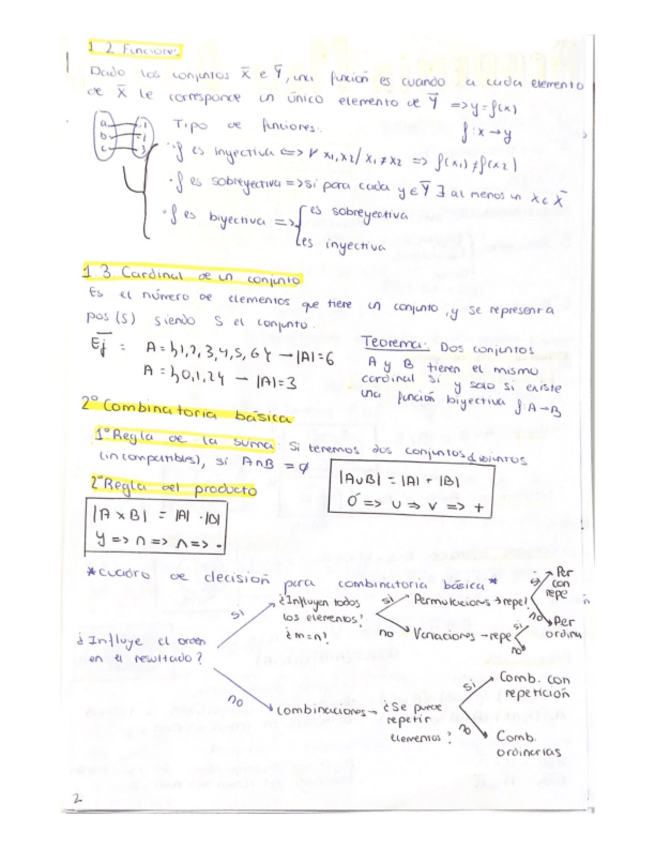 1.2 Funciones
Dado los conjuntos X̄ e Ȳ, una función es cuando a cada elemento
de X̄ le corresponde un único elemento de Ȳ => y = f(x)
Tipo de funciones:
f: x → y
a 1
b 2
c 3
· f es inyectiva <=> ∀ x₁, x₂ / x₁ ≠ x₂ => f(x₁) ≠ f(x₂)
· f es sobreyectiva => si para cada y ∈ Ȳ ∃ al menos un x ∈ X̄
· f es biyectiva => { es sobreyectiva
es inyectiva
1.3 Cardinal de un conjunto
Es el número de elementos que tiene un conjunto, y se representa
pos (S) siendo S el conjunto.
Ej: A = {1,2,3,4,5,6} — |A| = 6
A = {0,1,2} — |A| = 3
Teorema: Dos conjuntos
A y B tieren el mismo
cardinal si y solo si existe
una función biyectiva f: A → B
2º Combinatoria básica
1º Regla de la suma: Si teremos dos conjuntos distintos
(incompatibles), si A∩B = ∅
|A∪B| = |A| + |B|
O => ∪ => ∨ => +
2º Regla del producto
|A x B| = |A| · |B|
Y => ∩ => ∧ => ·
*cuadro de decisión para combinatoria básica*
¿Influye el orden
en el resultado?
si
¿Influyen todos
los elementos?
¿m=n?
si
Permutaciones → repe?
si
Per
con
repe
no
Per
ordina
no
Variaciones → repe
si
no
no
Combinaciones → ¿Se puede
repetir
elementos?
si
Comb. con
repetición
no
Comb.
ordinarias
2